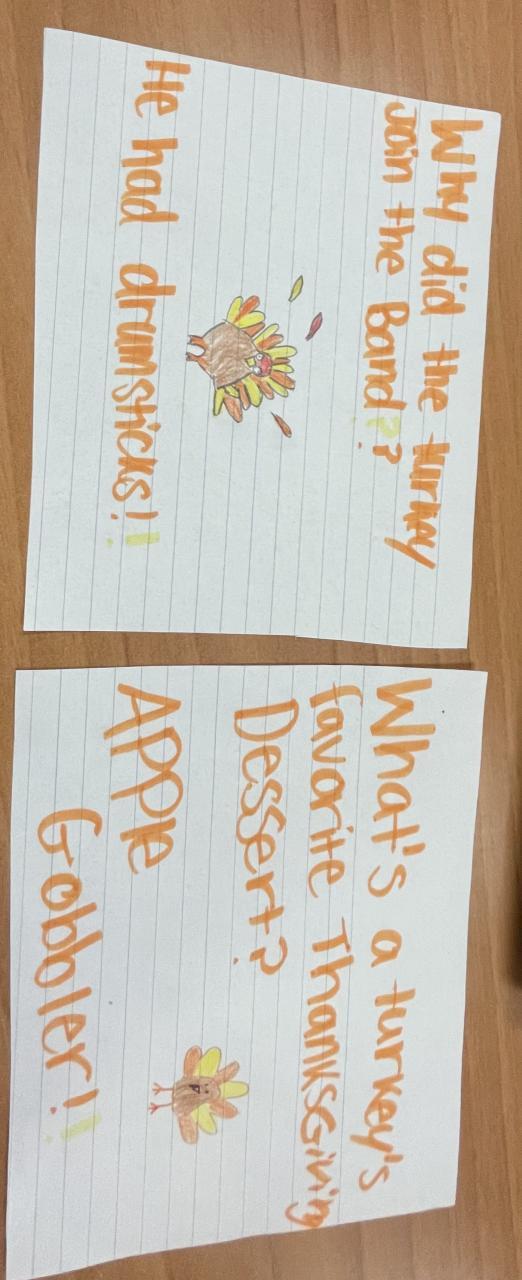 Why did the turkey
Join the Band??
He had drumsticks!!
What's a turkey's
favorite Thanksgiving
Dessert?
Apple
Gobbler!!